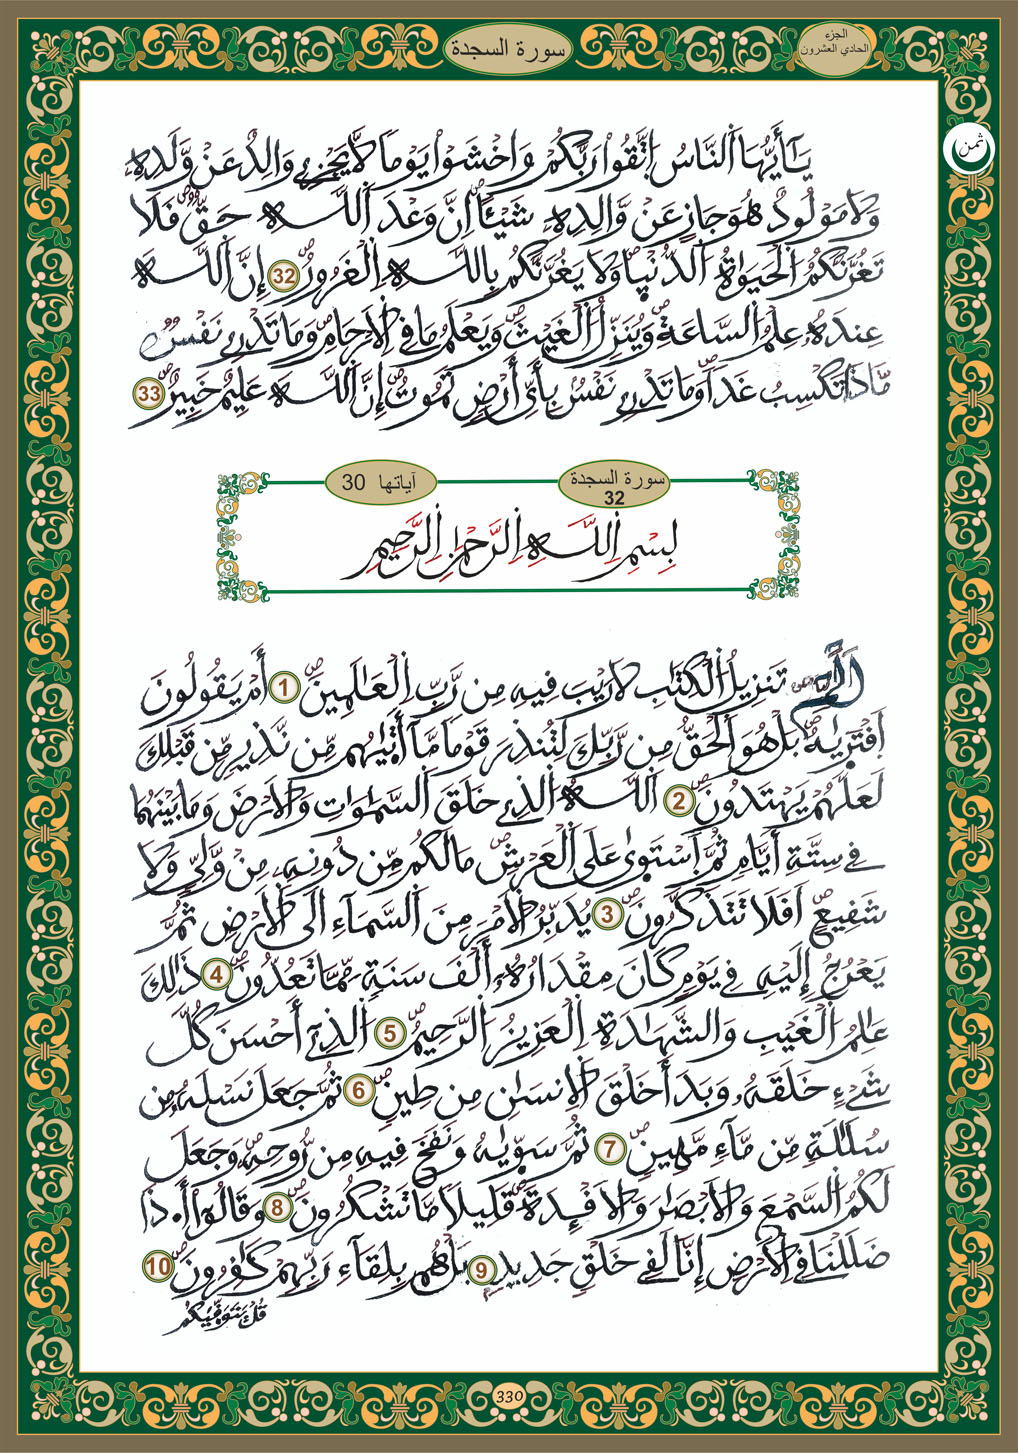 سورة السجدة
الجزء
الحادي العشرون
ثمن
يَٰٓأَيُّهَا اَ۬لنَّاسُ اُ۪تَّقُواْ رَبَّكُمْ وَاخْشَوْاْ يَوْماٗ لَّا يَجْزِے وَالِدٌ عَنْ وَّلَدِهِۦ
وَلَا مَوْلُودٌ هُوَ جَازٍ عَنْ وَّالِدِهِۦ شَيْـٔاًۖ اِنَّ وَعْدَ اَ۬للَّهِ حَقّٞۖ فَلَا
تَغُرَّنَّكُمُ اُ۬لْحَيَوٰةُ اُ۬لدُّنْي۪اۖ وَلَا يَغُرَّنَّكُم بِاللَّهِ اِ۬لْغَرُورُۖ 32 إِنَّ اَ۬للَّهَ
عِندَهُۥ عِلْمُ اُ۬لسَّاعَةِۖ وَيُنَزِّلُ اُ۬لْغَيْثَۖ وَيَعْلَمُ مَا فِے اِ۬لْأَرْحَامِۖ وَمَا تَدْرِے نَفْسٞ
مَّاذَا تَكْسِبُ غَداٗۖ وَمَا تَدْرِے نَفْسُۢ بِأَيِّ أَرْضٖ تَمُوتُۖ إِنَّ اَ۬للَّهَ عَلِيمٌ خَبِيرٞۖ 33
سورة السجدة
32
آياتها 30
بِسْمِ اِ۬للَّهِ اِ۬لرَّحْمَٰنِ اِ۬لرَّحِيمِ
أَلَٓمِّٓۖ تَنزِيلُ اُ۬لْكِتَٰبِ لَا رَيْبَ فِيهِ مِن رَّبِّ اِ۬لْعَٰلَمِينَۖ 1 أَمْ يَقُولُونَ
اَ۪فْتَر۪يٰهُۖ بَلْ هُوَ اَ۬لْحَقُّ مِن رَّبِّكَ لِتُنذِرَ قَوْماٗ مَّآ أَت۪يٰهُم مِّن نَّذِيرٖ مِّن قَبْلِكَ
لَعَلَّهُمْ يَهْتَدُونَۖ 2 اَ۬للَّهُ اُ۬لذِے خَلَقَ اَ۬لسَّمَٰوَٰتِ وَالْأَرْضَ وَمَا بَيْنَهُمَا
فِے سِتَّةِ أَيَّامٖ ثُمَّ اَ۪سْتَو۪يٰ عَلَى اَ۬لْعَرْشِۖ مَا لَكُم مِّن دُونِهِۦ مِنْ وَّلِيّٖ وَلَا
شَفِيعٍۖ اَفَلَا تَتَذَكَّرُونَۖ 3 يُدَبِّرُ اُ۬لْأَمْرَ مِنَ اَ۬لسَّمَآءِ اِلَى اَ۬لْأَرْضِ ثُمَّ
يَعْرُجُ إِلَيْهِ فِے يَوْمٖ كَانَ مِقْدَارُهُۥٓ أَلْفَ سَنَةٖ مِّمَّا تَعُدُّونَۖ 4 ذَٰلِكَ
عَٰلِمُ اُ۬لْغَيْبِ وَالشَّهَٰدَةِ اِ۬لْعَزِيزُ اُ۬لرَّحِيمُۖ 5 اُ۬لذِےٓ أَحْسَنَ كُلَّ
شَےْءٍ خَلَقَهُۥ وَبَدَأَ خَلْقَ اَ۬لْإِنسَٰنِ مِن طِينٖۖ 6 ثُمَّ جَعَلَ نَسْلَهُۥ مِن
سُلَٰلَةٖ مِّن مَّآءٖ مَّهِينٖۖ 7 ثُمَّ سَوّ۪يٰهُ وَنَفَخَ فِيهِ مِن رُّوحِهِۦۖ وَجَعَلَ
لَكُمُ اُ۬لسَّمْعَ وَالْأَبْصَٰرَ وَالْأَفْـِٕدَةَۖ قَلِيلاٗ مَّا تَشْكُرُونَۖ 8 وَقَالُوٓاْ أَ۟ذَا
ضَلَلْنَا فِے اِ۬لْأَرْضِ إِنَّا لَفِے خَلْقٖ جَدِيدِۢۖ 9 بَلْ هُم بِلِقَآءِ رَبِّهِمْ كَٰفِرُونَۖ 10
قُلْ يَتَوَفّ۪يٰكُم
330